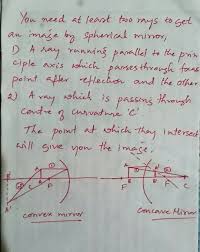 You need at least too rays to get
an image by spherical mirror,
1) A ray running parallel to the prin
ciple axis which passes through focus
point after reflection and the other
2) A ray which is passing through
Centre of curvature 'C'
The point at which they intersect
will give you the image.
convex mirror
Concave Mirror